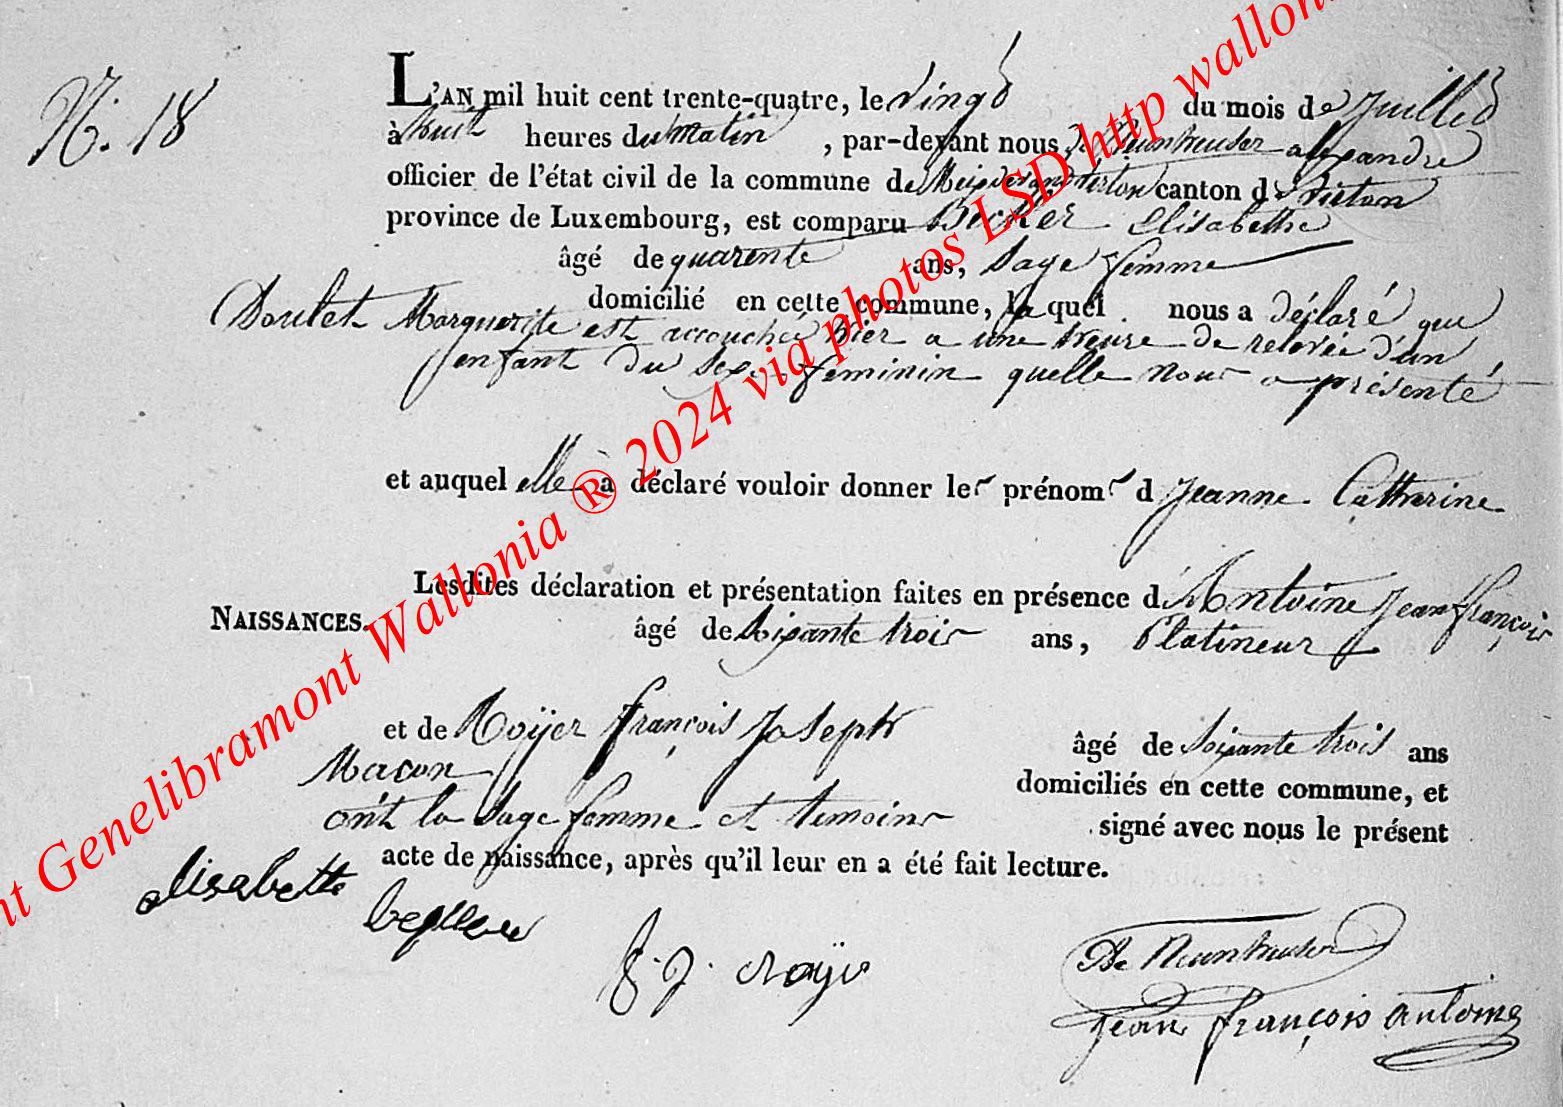 N. 18
L'AN mil huit cent trente-quatre, le vingt du mois de juillet
à huit heures du matin, par-devant nous De Neunheuser alexandre
officier de l'état civil de la commune de Meix devant virton canton de virton
province de Luxembourg, est comparu Becker Elisabethe
âgé de quarente ans, Sage femme
domicilié en cette commune, la quel nous a déclaré que
Doulet Marguerite est accouchée hier a une heure de relevée d'un
enfant du sexe feminin quelle nous a présenté
et auquel elle à déclaré vouloir donner les prénoms d Jeanne Catherine
Lesdites déclaration et présentation faites en présence d'Antoine jean françois
NAISSANCES.
âgé de Soixante trois ans, Platineur
et de Roÿer françois Joseph âgé de Soixante trois ans
Macon domiciliés en cette commune, et
ont la Sage femme et temoins signé avec nous le présent
acte de naissance, après qu'il leur en a été fait lecture.
elisabette
f. j. roÿer
De Neunheuser
jean françois antoine
nt Genelibramont Wallonia ® 2024 via photos LSD http walloni